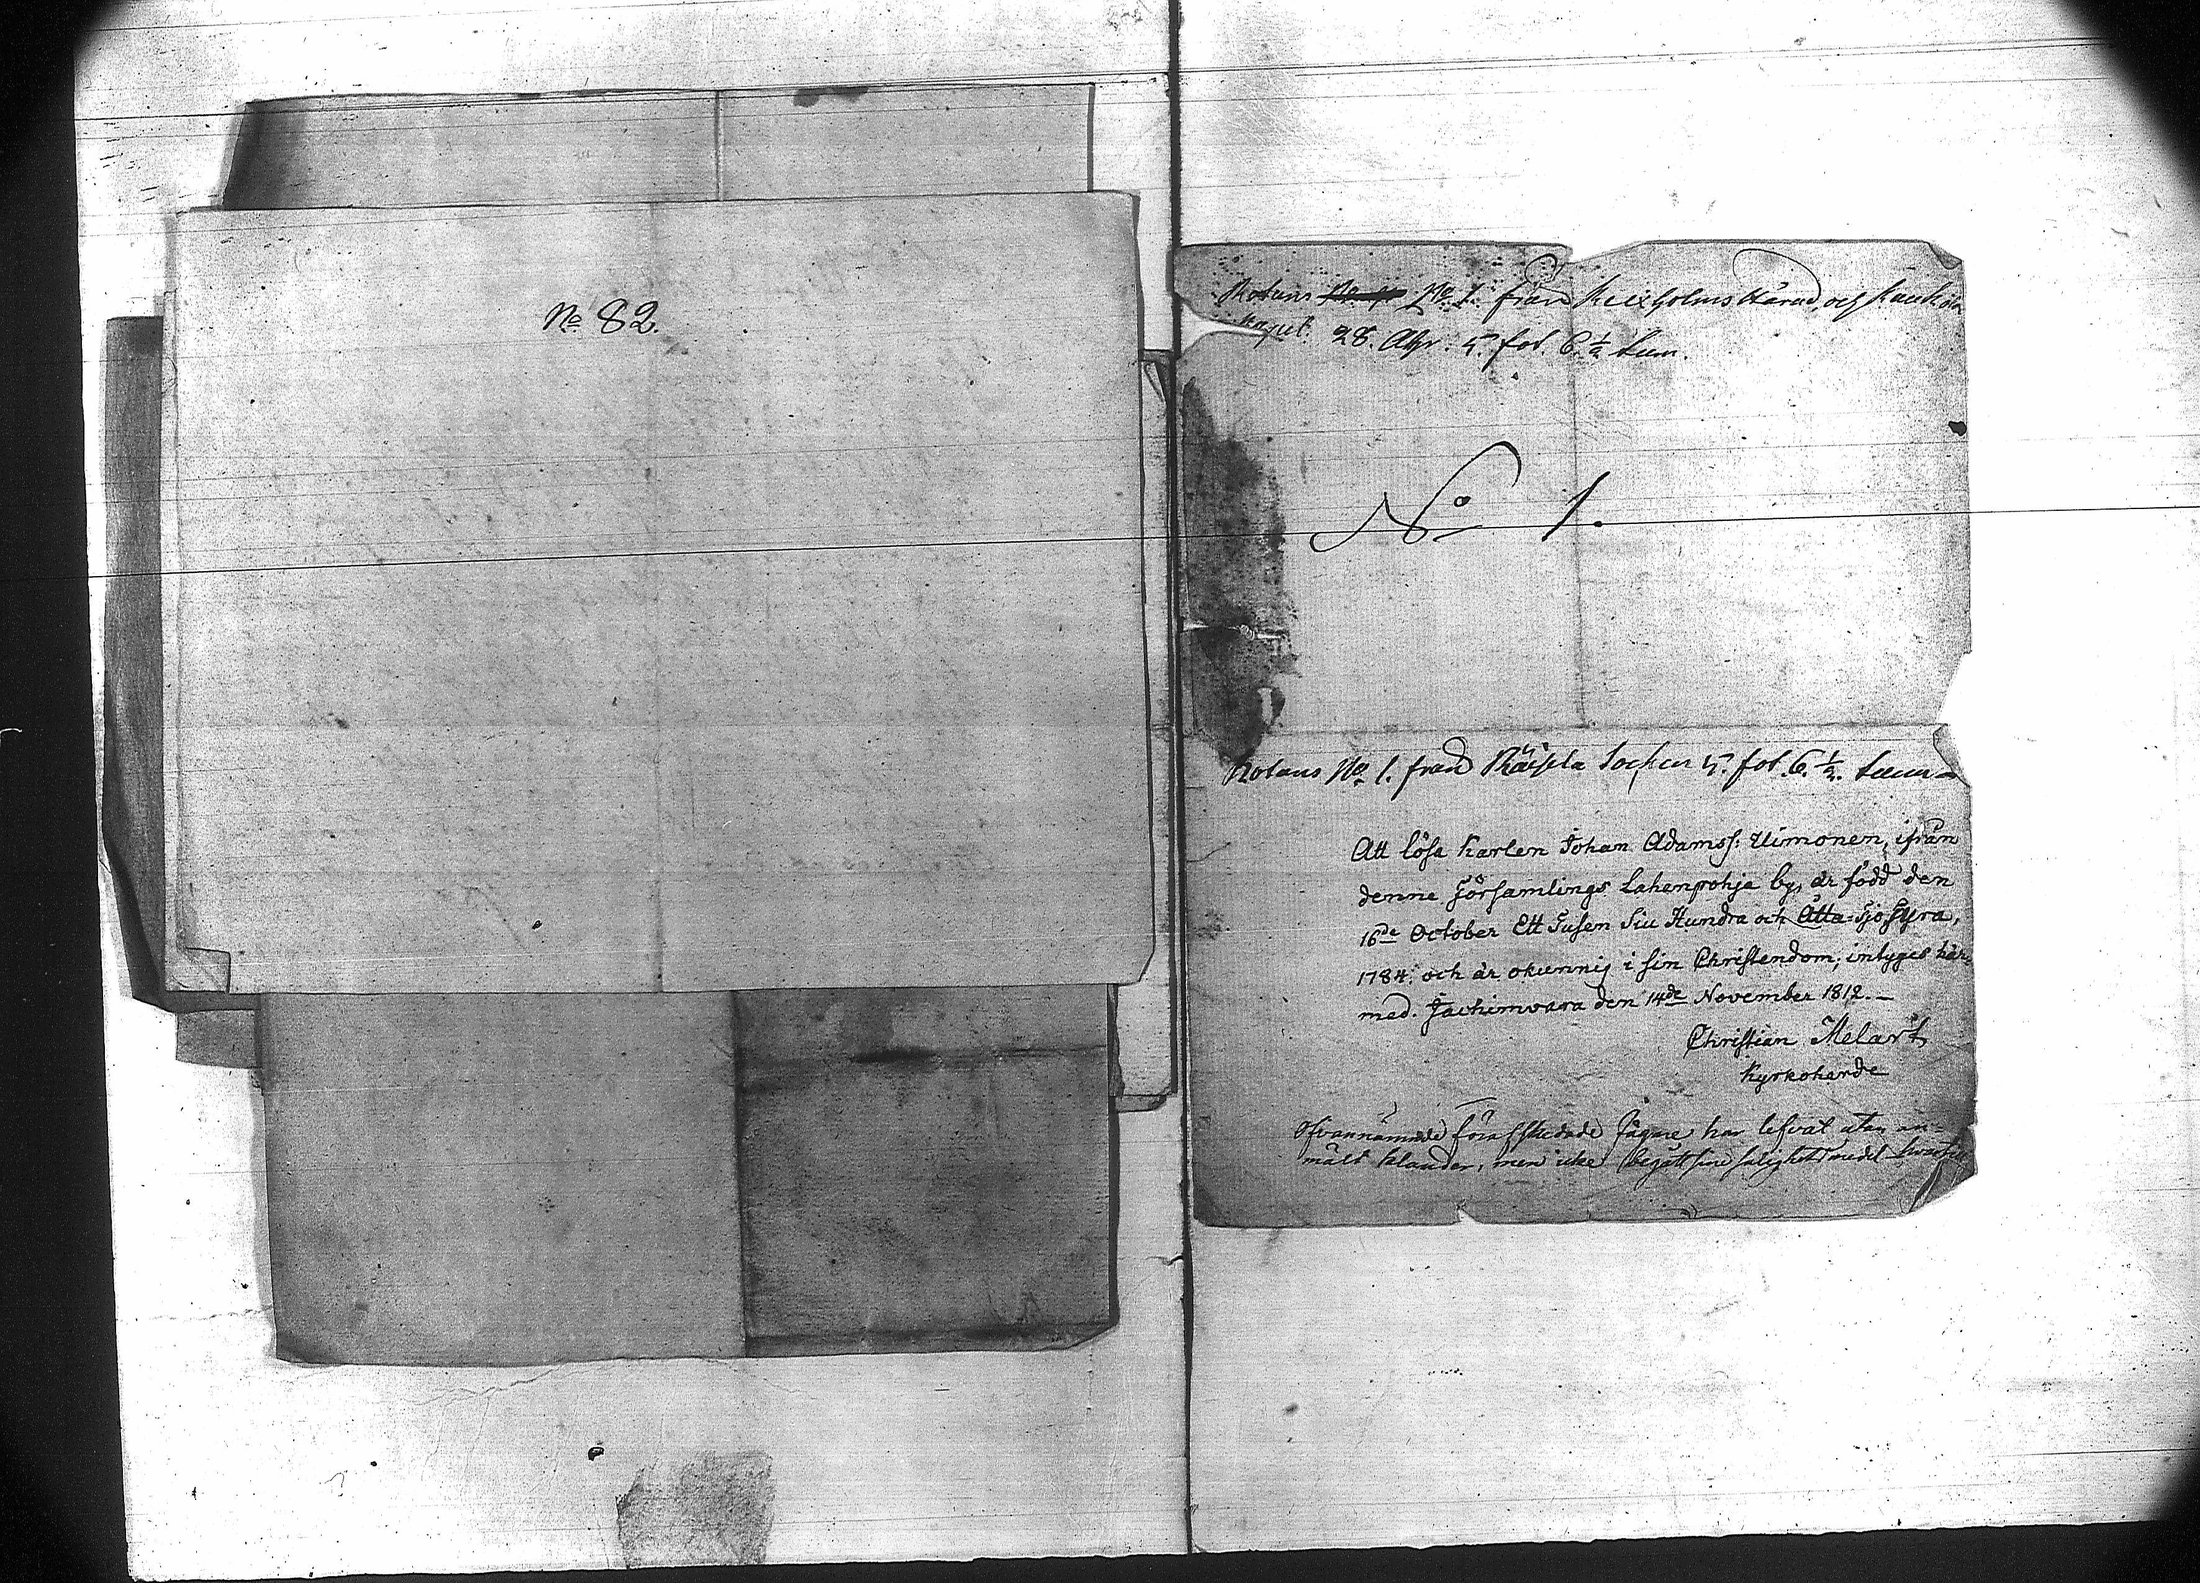 No 82.
Rotans No 1. från Kexholms Härad, och
28. 5. fot. 6 1/2 tum.
No 1.
Rotans No 1. från Räisela Sochen 5. fot. 6. 1/2. tum
Att lösa karlen Johan Adamss: Uimonen, ifrån
denne Församlings Lahenpohja by, är född den
16de October Ett Tusen Siu Hundra och Åtta-tjo fyra,
1784. och är okunnig i sin Christendom; intyges här-
med. Jachimvara den 14de November 1812.-
Christian Melart
Kyrkoherde
Ofvannämnde förafskedade Jägare har lefvat utan an-
mält klander, men icke begått sine salighets medel